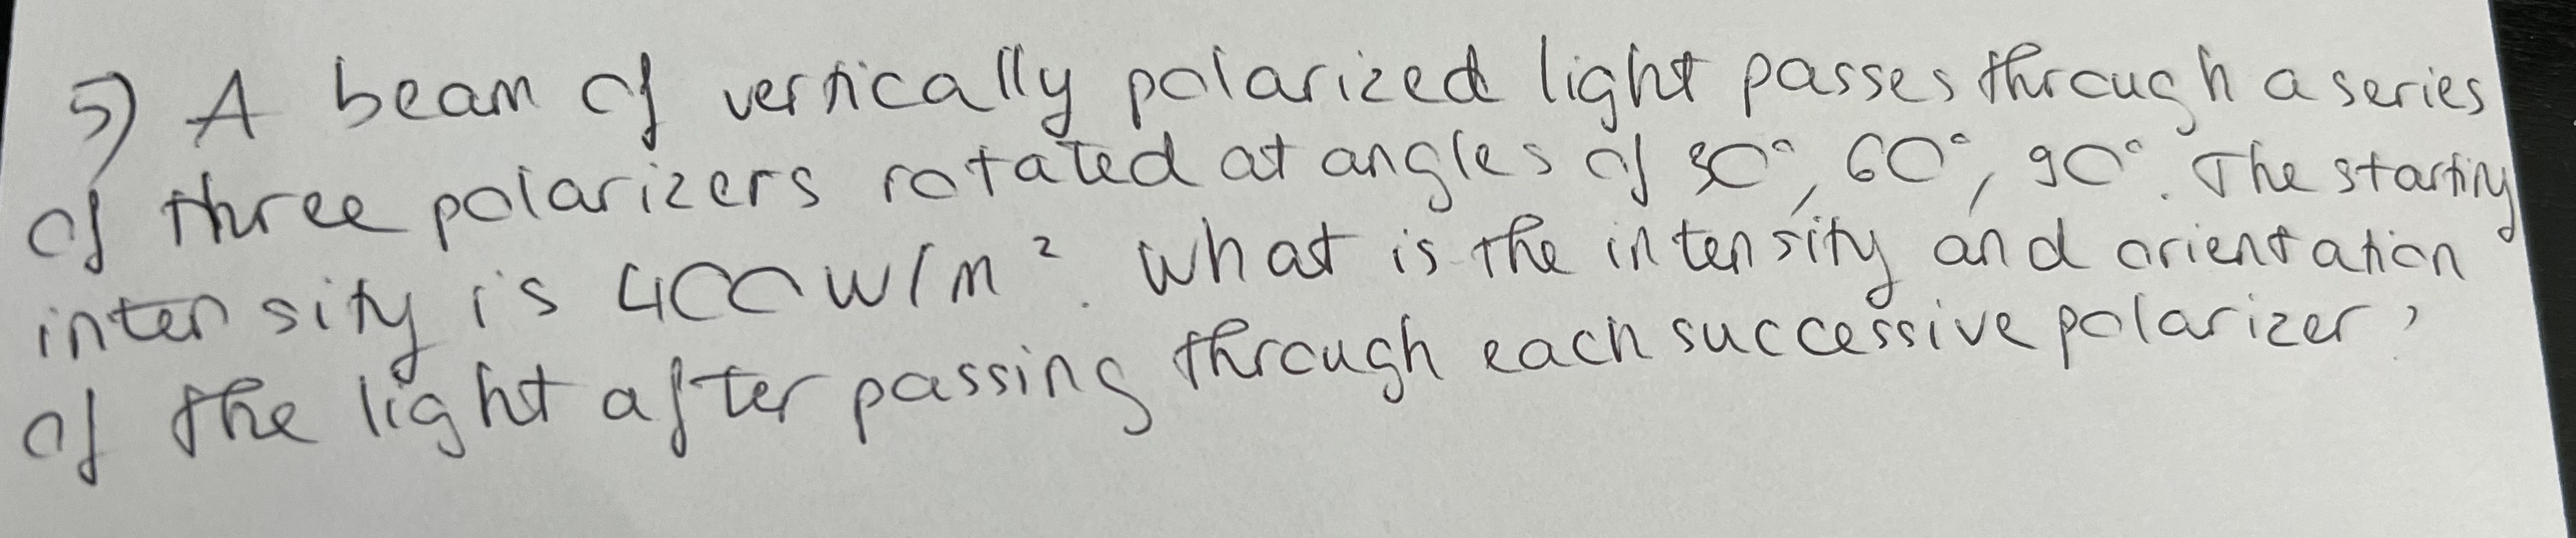 5) A beam of vertically polarized light passes through a series
of three polarizers rotated at angles of 30°, 60°, 90°. The starting
intensity is 400 W/m². What is the intensity and orientation
of the light after passing through each successive polarizer?